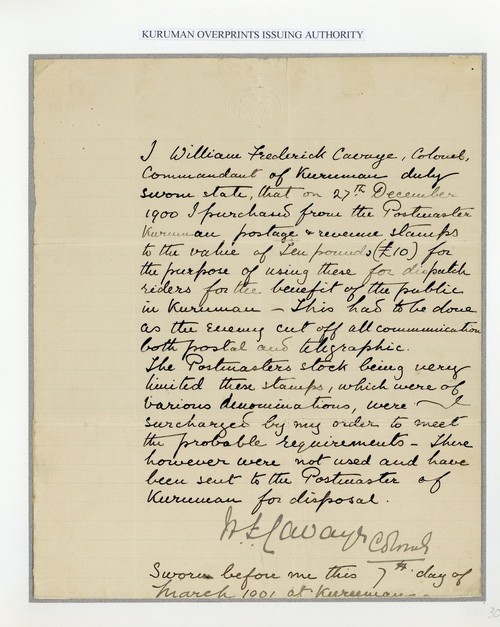 KURUMAN OVERPRINTS ISSUING AUTHORITY
I William Frederick Cavaye, Colonel,
Commandant of Kuruman duly
sworn state, that on 27th December
1900 I purchased from the Postmaster
Kuruman postage & revenue stamps
to the value of Ten pounds (£10) for
the purpose of using these for dispatch
riders for the benefit of the public
in Kuruman – This had to be done
as the enemy cut off all communication
both postal and telegraphic.
The Postmasters stock being very
limited these stamps, which were of
various denominations, were
surcharged by my order to meet
the probable requirements – These
however were not used and have
been sent to the Postmaster of
Kuruman for disposal.
W F Cavaye Colonel
Sworn before me this 7th day of
March 1901 at Kuruman
30